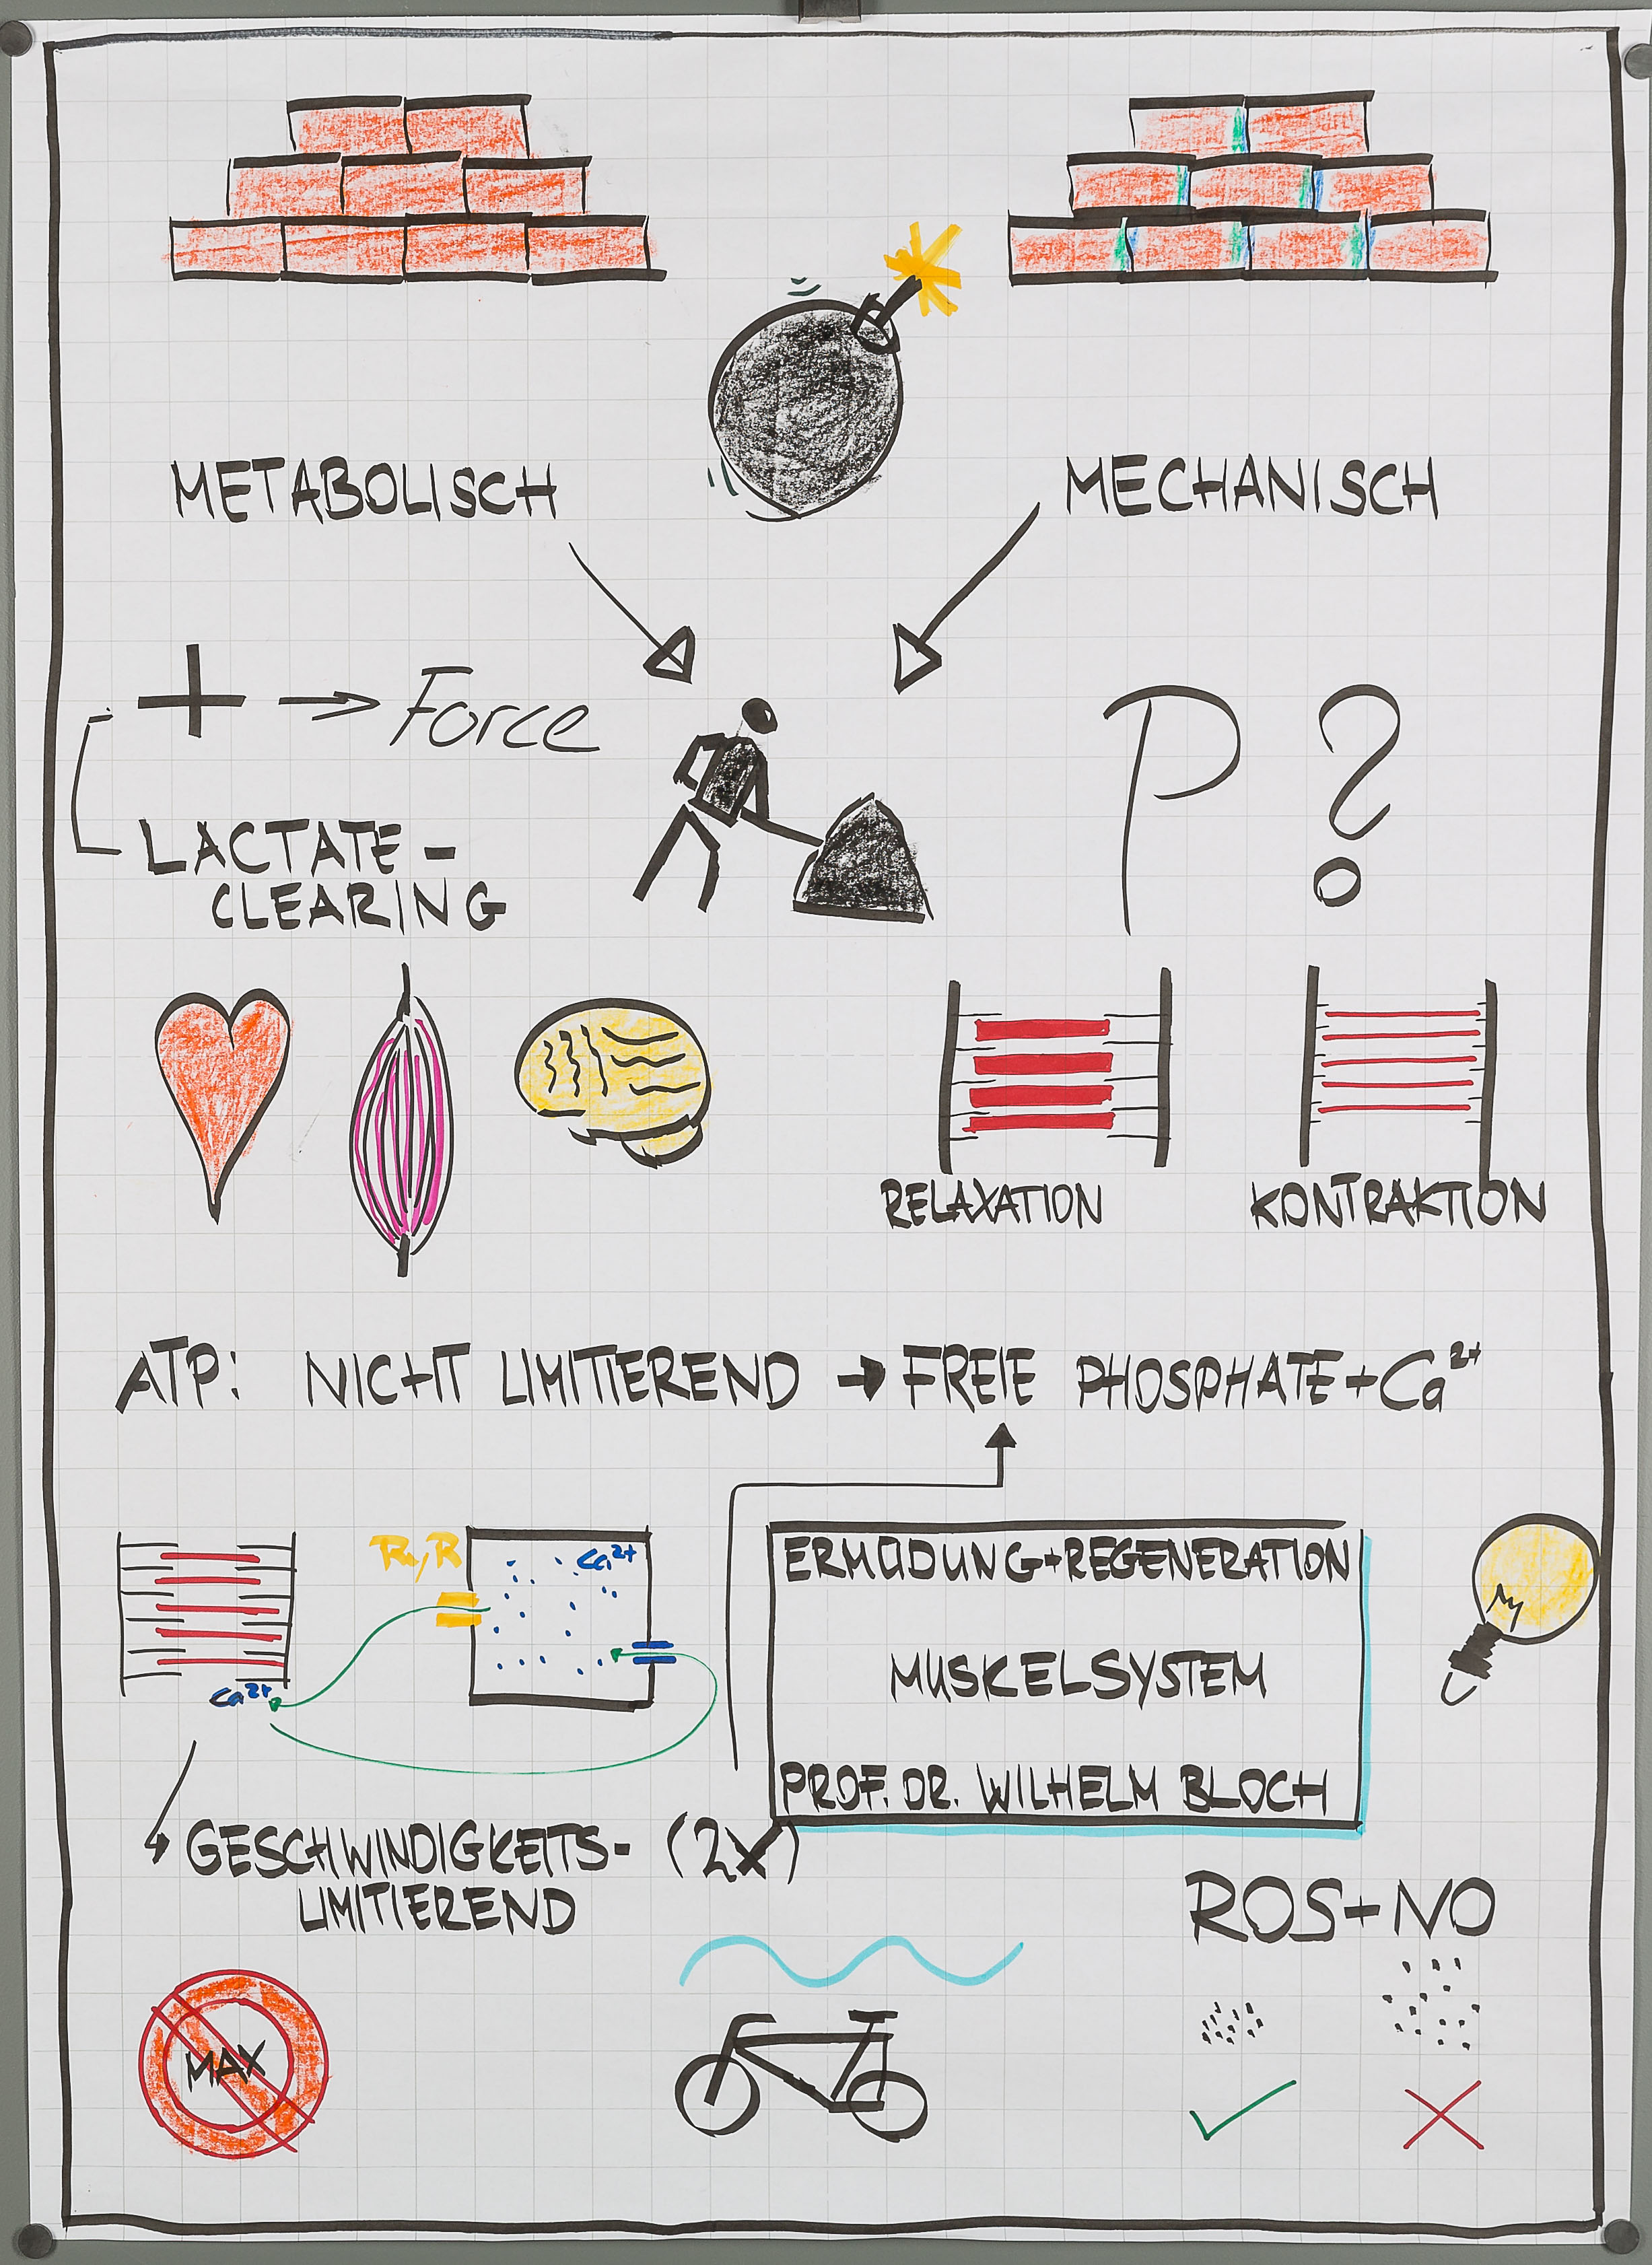 METABOLISCH
MECHANISCH
+ → Force
P ?
LACTATE-
CLEARING
RELAXATION
KONTRAKTION
ATP: NICHT LIMITIEREND → FREIE PHOSPHATE + Ca²⁺
Ca²⁺
Ca²⁺
ERMÜDUNG + REGENERATION
MUSKELSYSTEM
PROF. DR. WILHELM BLOCH
GESCHWINDIGKEITS- (2x)
LIMITIEREND
ROS + NO
MAX